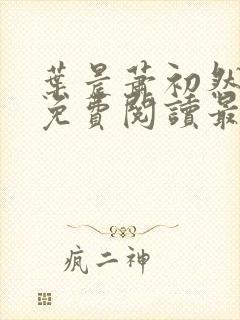 葉昊蕭初然
免費閱讀最
疯二神